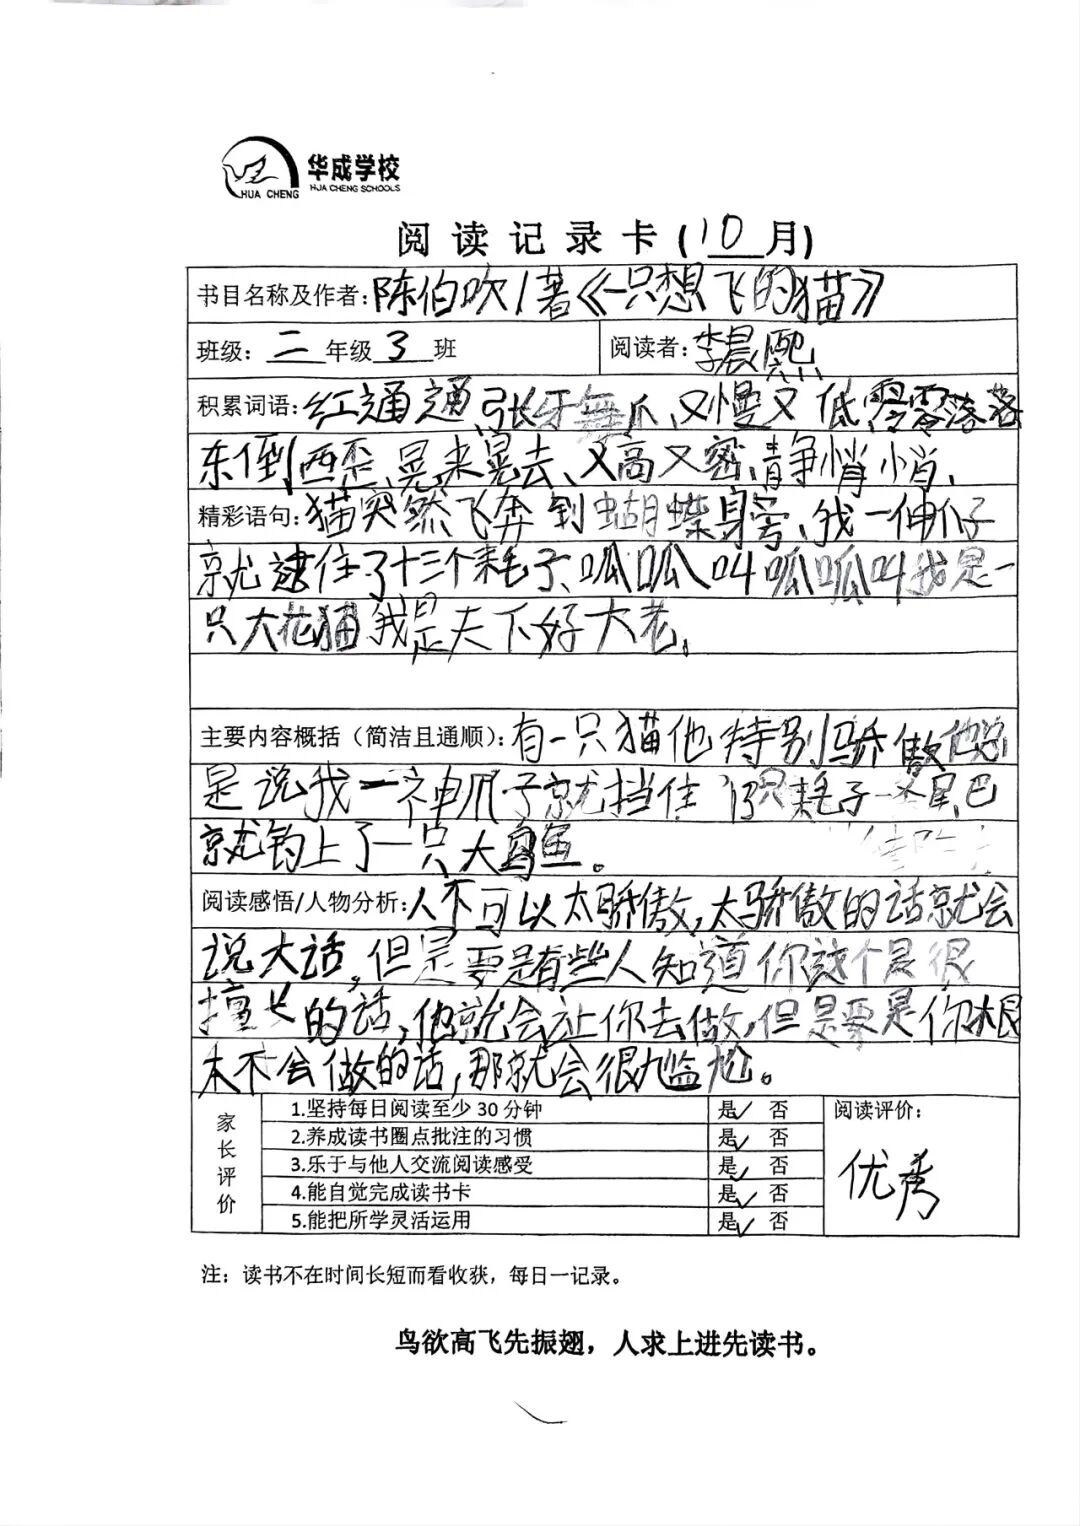 HUA CHENG
华成学校
HUA CHENG SCHOOLS
阅读记录卡(10月)
书目名称及作者:陈伯吹/著《一只想飞的猫》
班级:二年级3班 阅读者:李晨熙
积累词语:红通通、张牙舞爪、又慢又低、零零落落
东倒西歪、晃来晃去、又高又密、静悄悄、
精彩语句:猫突然飞奔到蝴蝶身旁、我一伸爪子
就逮住了十三个耗子、呱呱叫呱呱叫我是一
只大花猫我是天下好大老。
主要内容概括(简洁且通顺):有一只猫他特别骄傲他总
是说我一神爪子就挡住13只耗子一 尾巴
就钓上了一只大鱼。
阅读感悟/人物分析:人不可以太骄傲,太骄傲的话就会
说大话,但是要是有些人知道你这个是很
擅长的话,他就会让你去做,但是要是你根
本不会做的话,那就会很尴尬。
家长评价
1.坚持每日阅读至少30分钟 是✓ 否
2.养成读书圈点批注的习惯 是✓ 否
3.乐于与他人交流阅读感受 是✓ 否
4.能自觉完成读书卡 是✓ 否
5.能把所学灵活运用 是✓ 否
阅读评价:
优秀
注:读书不在时间长短而看收获,每日一记录。
鸟欲高飞先振翅,人求上进先读书。